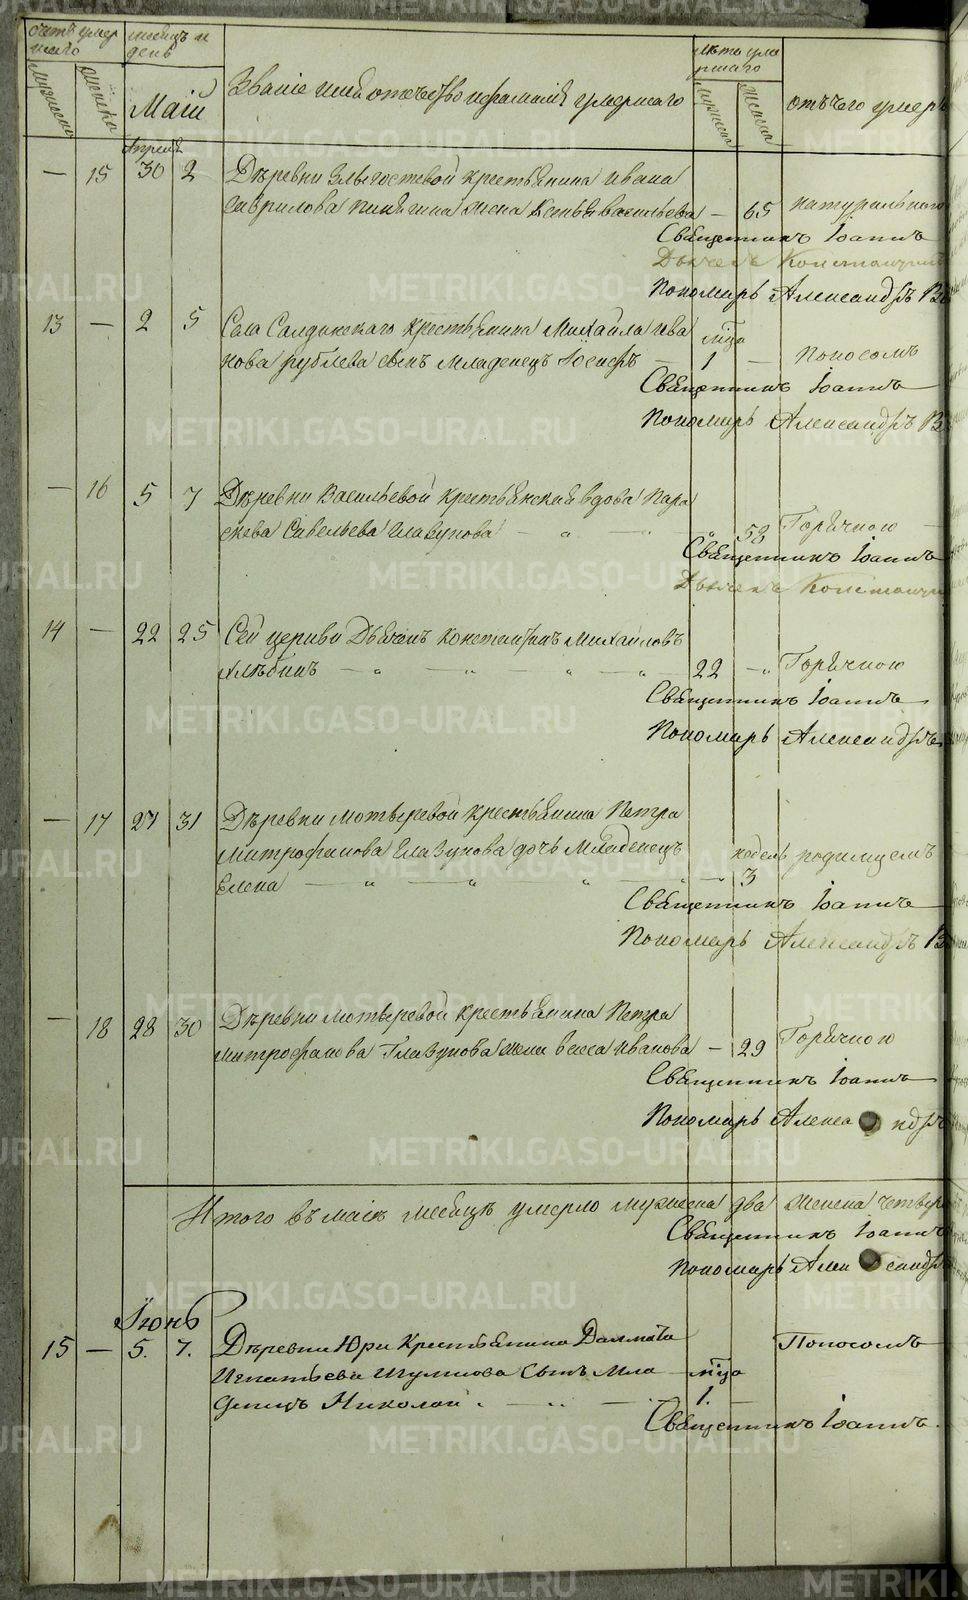 счетъ умершаго
мѣсяцъ и день
Званіе имя отчество и фамилія умершаго
лѣта умершаго
отъ чего умеръ
мужеска
женска
Маій
мужеска
женска
Апреля
— 15 30 2 Деревни крестьянина Ивана
Гаврилова жена Васильева — 65 натурального
Священникъ Іоаннъ
Дьячекъ Константинъ
Пономарь Александръ
13 — 2 5 Села Салдинскаго крестьянина Михайла Ива
нова Рублева сынъ младенецъ Іосифъ мца 1 — поносомъ
Священникъ Іоаннъ
Пономарь Александръ
— 16 5 7 Деревни Васильевой крестьянская вдова Пара
скева Савельева Глазунова 58 Горячкою
Священникъ Іоаннъ
Дьячекъ Константинъ
14 — 22 25 Сей церкви Дьячекъ Константинъ Михайловъ
22 Горячкою
Священникъ Іоаннъ
Пономарь Александръ
— 17 27 31 Деревни Мотыревой крестьянина Петра
Митрофанова Глазунова дочь младенецъ недель родимцемъ
Елена 3
Священникъ Іоаннъ
Пономарь Александръ
— 18 28 30 Деревни Мотыревой крестьянина Петра
Митрофанова Глазунова жена Иванова — 29 Горячкою
Священникъ Іоаннъ
Пономарь Александръ
Итого въ маіѣ месяцѣ умерло мужеска два женска четверо
Священникъ Іоаннъ
Пономарь Александръ
Іюнь
15 — 5. 7. Деревни Юри Крестьянина Далмата Поносомъ
Игнатьева Шумкова Сынъ Мла мца
денецъ Николай 1.
Священникъ Іоаннъ.
METRIKI.GASO-URAL.RU